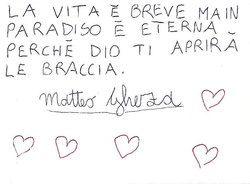 LA VITA È BREVE MAIN
PARADISO È ETERNA
PERCHÈ DIO TI APRIRÀ
LE BRACCIA.
Matteo